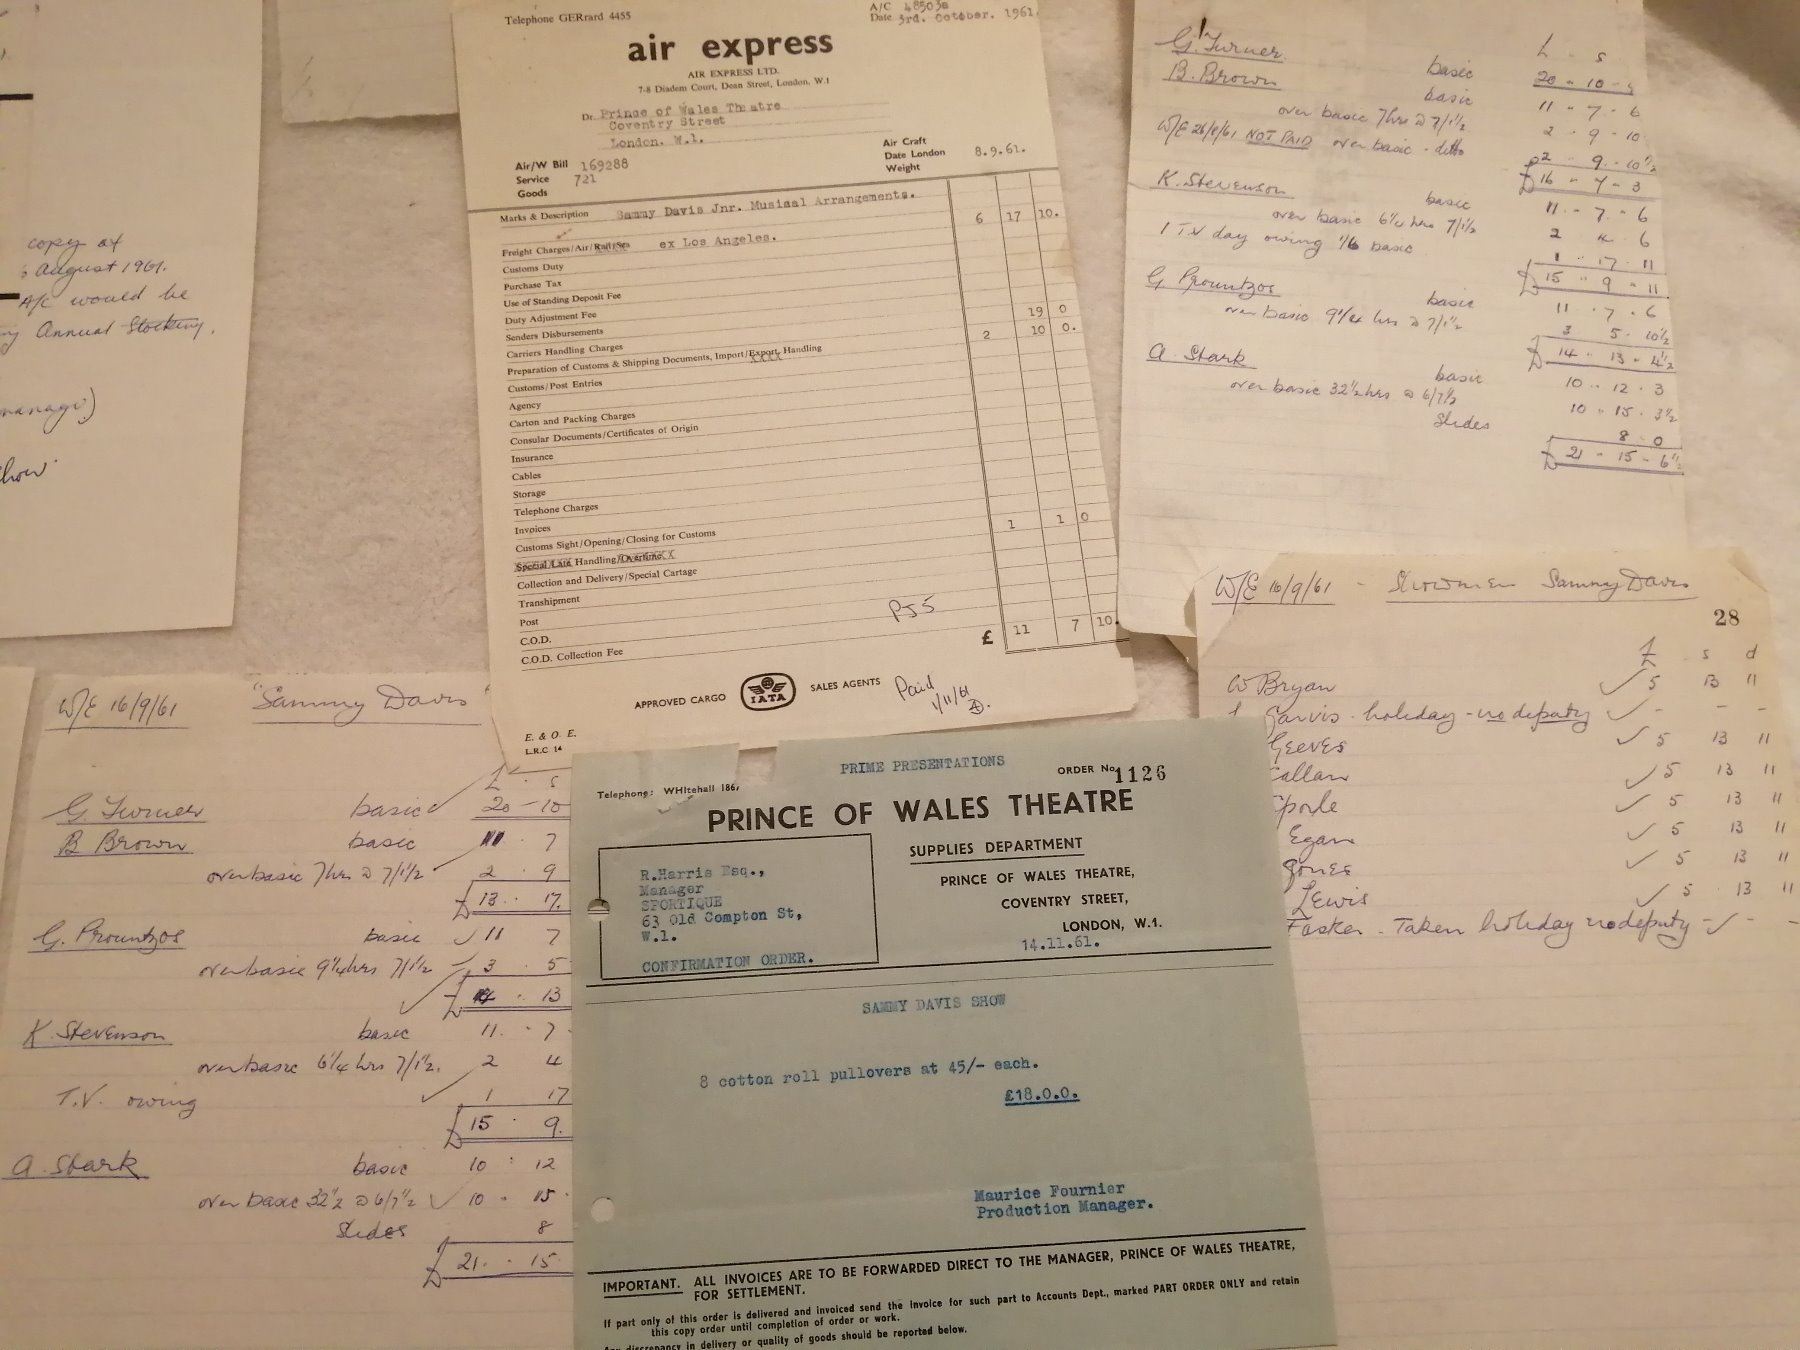 copy of
August 1961.
A/C would be
Annual Stocking.
Telephone GERrard 4455
A/C 48503a
Date 3rd. October. 1961.
air express
AIR EXPRESS LTD.
7-8 Diadem Court, Dean Street, London, W.1
Dr. Prince of Wales Theatre
Coventry Street
London. W.1.
Air/W Bill 169288
Service 721
Goods
Air Craft
Date London 8.9.61.
Weight
Marks & Description Sammy Davis Jnr. Musical Arrangements.
Freight Charges/Air/Rail/Sea ex Los Angeles. 6 17 10.
Customs Duty
Purchase Tax
Use of Standing Deposit Fee
Duty Adjustment Fee
Senders Disbursements 19 0
Carriers Handling Charges 2 10 0.
Preparation of Customs & Shipping Documents, Import/Export, Handling
Customs/Post Entries
Agency
Carton and Packing Charges
Consular Documents/Certificates of Origin
Insurance
Cables
Storage
Telephone Charges
Invoices
Customs Sight/Opening/Closing for Customs 1 1 0
Special/Late Handling/Overtime
Collection and Delivery/Special Cartage
Transhipment
Post
C.O.D.
C.O.D. Collection Fee
PJ5
£ 11 7 10.
APPROVED CARGO IATA SALES AGENTS
Paid
1/11/61
E. & O. E.
L.R.C 14
G. Turner basic 20 - 10
B. Brown basic 11 - 7 - 6
over basic 7hrs @ 7/1½ 2 - 9 - 10
W/E 26/8/61 NOT PAID over basic - ditto 2 - 9 - 10½
£ 16 - 7 - 3
K. Stevenson basic 11 - 7 - 6
over basic 6¼ hrs 7/1½ 2 4 6
1 T.V day owing 1/6 basic 1 - 17 - 11
£ 15 - 9 - 11
G Prountzos basic 11 - 7 - 6
over basic 9¼ hrs @ 7/1½ 3 5 - 10½
£ 14 - 13 - 4½
A. Stark basic 10 - 12 - 3
over basic 32½ hrs @ 6/7½ 10 - 15 - 3½
Slides 8 - 0
£ 21 - 15 - 6½
W/E 16/9/61 - Showmen Sammy Davis
28
£ s d
W Bryan 5 13 11
Jarvis - holiday - no deputy - - -
Geeves 5 13 11
Callan 5 13 11
5 13 11
Egan 5 13 11
Jones 5 13 11
Lewis 5 13 11
Fasker - Taken holiday no deputy - -
W/E 16/9/61 "Sammy Davis"
£ s
G. Turner basic 20 - 10
B Brown basic 11 - 7
over basic 7hrs @ 7/1½ 2 . 9
£ 13 . 17.
G. Prountzos basic 11 7
over basic 9¼hrs 7/1½ 3 . 5
£ 14 . 13
K Stevenson basic 11. - 7
over basic 6¼ hrs 7/1½. 2 4
T.V. owing 1 17
£ 15 . 9.
A. Stark basic 10 : 12
over basic 32½ @ 6/7½ 10 - 15
Slides 8
£ 21. - 15
PRIME PRESENTATIONS
ORDER No 1126
Telephone: WHItehall 186
PRINCE OF WALES THEATRE
SUPPLIES DEPARTMENT
PRINCE OF WALES THEATRE,
COVENTRY STREET,
LONDON, W.1.
14.11.61.
R.Harris Esq.,
Manager
SPORTIQUE
63 Old Compton St,
W.1.
CONFIRMATION ORDER.
SAMMY DAVIS SHOW
8 cotton roll pullovers at 45/- each.
£18.0.0.
Maurice Fournier
Production Manager.
IMPORTANT. ALL INVOICES ARE TO BE FORWARDED DIRECT TO THE MANAGER, PRINCE OF WALES THEATRE,
FOR SETTLEMENT.
If part only of this order is delivered and invoiced send the invoice for such part to Accounts Dept., marked PART ORDER ONLY and retain
this copy order until completion of order or work.
Any discrepancy in delivery or quality of goods should be reported below.